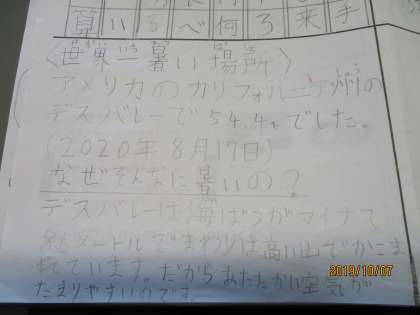 算 い る べ 何 ろ 来 手
〈世界一暑い場所〉
せかいいちあつ ばしょ
アメリカのカリフォルニア州の
しゅう
デスバレーで54.4℃でした。
(2020年8月17日)
なぜそんなに暑いの?
デスバレーは海ばつがマイナス
86メートルでまわりは高い山でかこま
れています。だからあたたかい空気が
たまりやすいのです。
2019/10/07